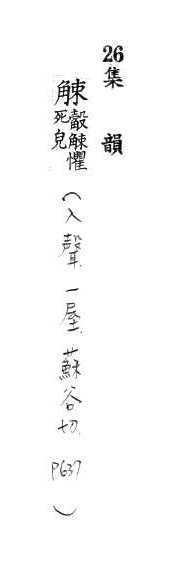 26集 韻
觫觳觫懼死皃(入聲一屋蘇谷切P637)